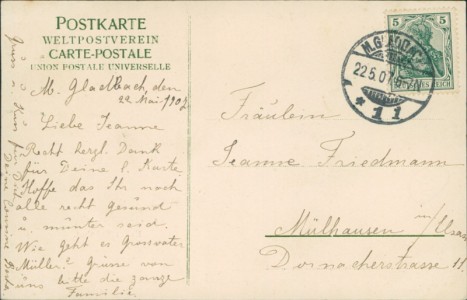 POSTKARTE
WELTPOSTVEREIN
CARTE-POSTALE
UNION POSTALE UNIVERSELLE
M. Gladbach, den
22. Mai. 1907
Liebe Jeanne
Recht herzl. Dank
für Deine l. Karte
Hoffe das Ihr noch
alle recht gesund
u. münter seid.
Wie geht es Grossvater
Müller? Grüsse von
uns bitte die ganze
Familie.
5 5
M. GLADBACH
22.5.07. 6-7N
* 1 1
REICH
Fräulein
Jeanne Friedmann
Mülhausen in/Elsass
Dornacherstrasse 11